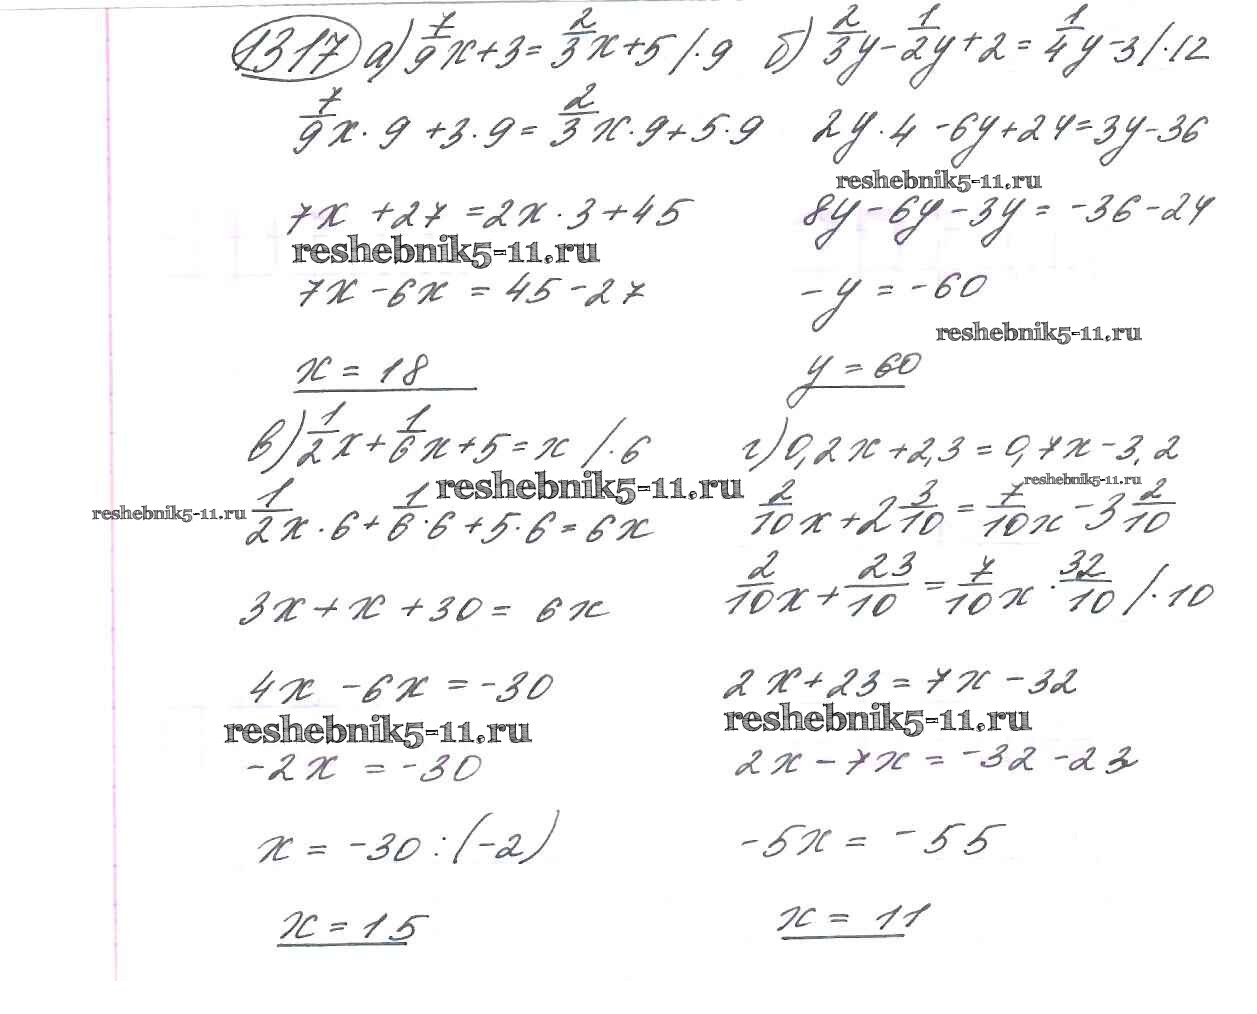 1317 а) 7/9x+3=2/3x+5 /·9
7/9x·9+3·9=2/3x·9+5·9
7x+27=2x·3+45
reshebnik5-11.ru
7x-6x=45-27
x=18
б) 2/3y-1/2y+2=1/4y-3/·12
2y·4-6y+24=3y-36
reshebnik5-11.ru
8y-6y-3y=-36-24
-y=-60
reshebnik5-11.ru
y=60
в) 1/2x+1/6x+5=x /·6
reshebnik5-11.ru
reshebnik5-11.ru
1/2x·6+1/6·6+5·6=6x
3x+x+30=6x
4x-6x=-30
reshebnik5-11.ru
-2x=-30
x=-30:(-2)
x=15
г) 0,2x+2,3=0,7x-3,2
reshebnik5-11.ru
2/10x+2 3/10=7/10x-3 2/10
2/10x+23/10=7/10x·32/10 /·10
2x+23=7x-32
reshebnik5-11.ru
2x-7x=-32-23
-5x=-55
x=11